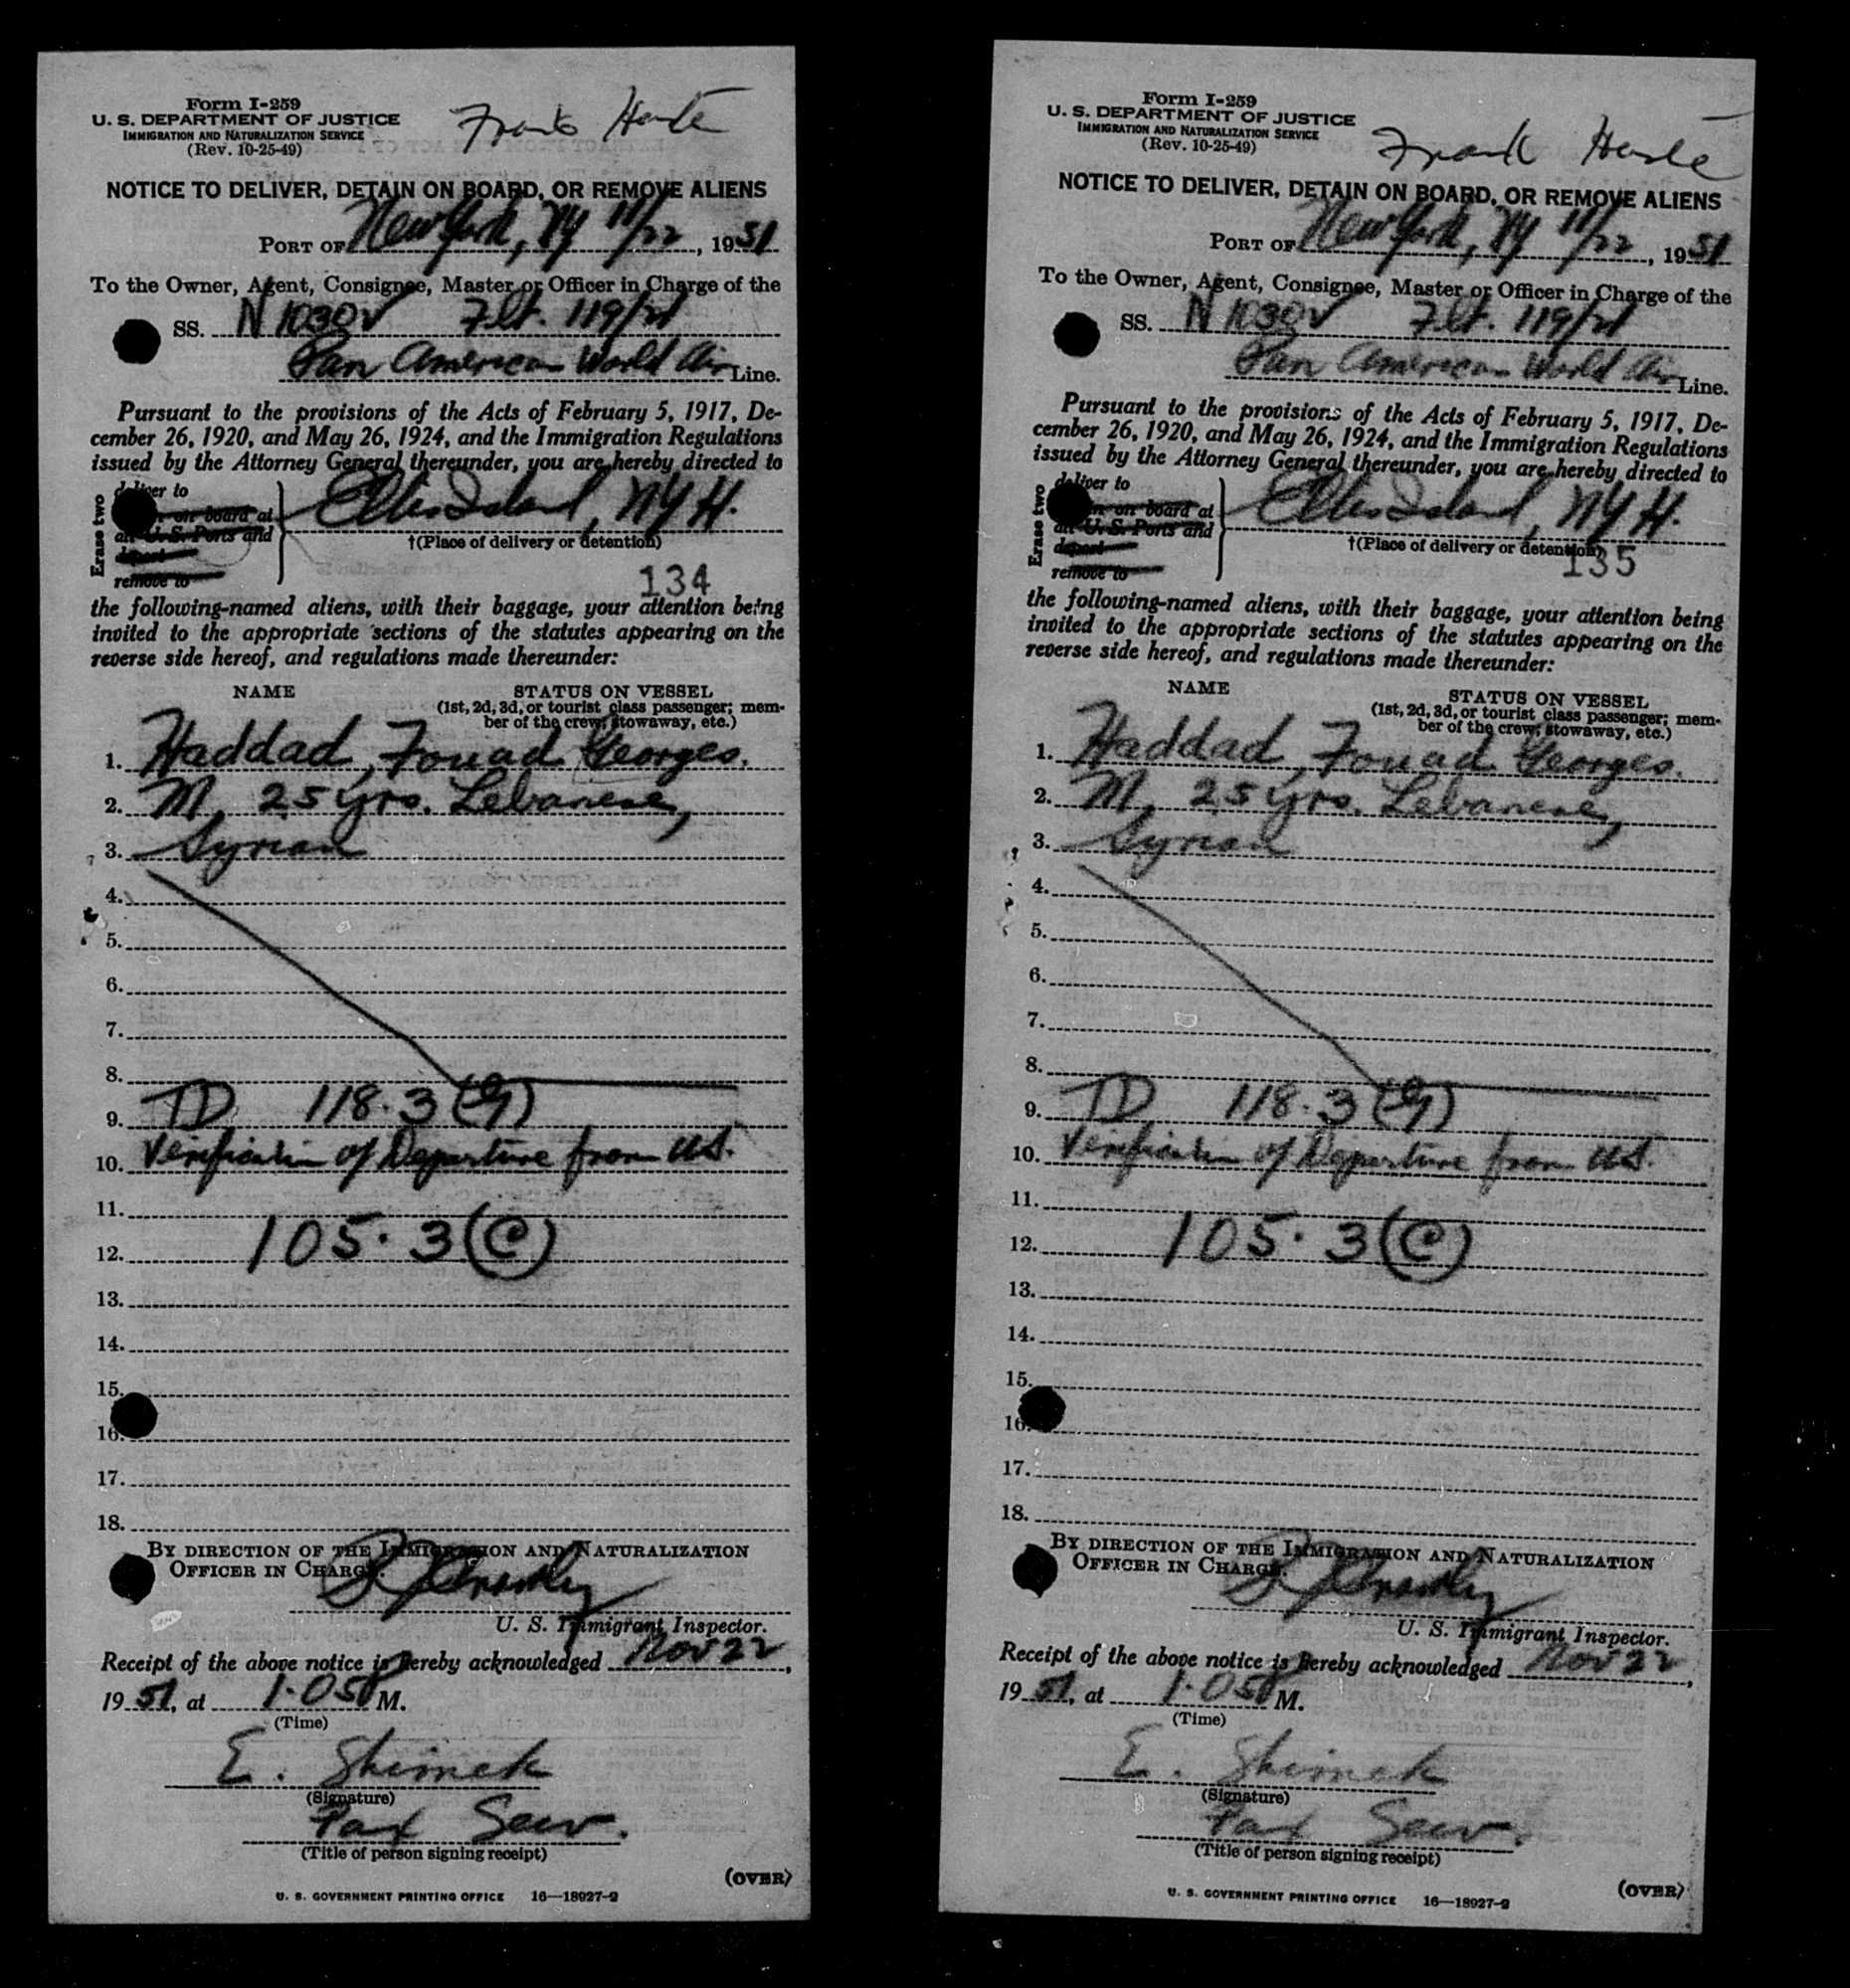 Form I-259
U. S. DEPARTMENT OF JUSTICE
IMMIGRATION AND NATURALIZATION SERVICE
(Rev. 10-25-49)
Frank
NOTICE TO DELIVER, DETAIN ON BOARD, OR REMOVE ALIENS
PORT OF New York, NY 11/22, 1951
To the Owner, Agent, Consignee, Master or Officer in Charge of the
SS. N 1030V Flt. 119/21
Pan American World Air Line.
Pursuant to the provisions of the Acts of February 5, 1917, De-
cember 26, 1920, and May 26, 1924, and the Immigration Regulations
issued by the Attorney General thereunder, you are hereby directed to
Erase two
deliver to
on board at
U. S. Ports and
deport
remove to
Ellis Island, NYH.
†(Place of delivery or detention)
134
the following-named aliens, with their baggage, your attention being
invited to the appropriate sections of the statutes appearing on the
reverse side hereof, and regulations made thereunder:
NAME
STATUS ON VESSEL
(1st, 2d, 3d, or tourist class passenger; mem-
ber of the crew, stowaway, etc.)
1. Haddad, Fouad Georges.
2. M, 25 yrs. Lebanese,
3. Syrian
4.
5.
6.
7.
8.
9. TD 118.3 (G)
10. Verification of Departure from US.
11.
12. 105.3(C)
13.
14.
15.
16.
17.
18.
BY DIRECTION OF THE IMMIGRATION AND NATURALIZATION
OFFICER IN CHARGE.
U. S. Immigrant Inspector.
Receipt of the above notice is hereby acknowledged Nov 22,
1951, at 1:05 P M.
(Time)
E. Shimek
(Signature)
Pax Serv.
(Title of person signing receipt)
(OVER)
U. S. GOVERNMENT PRINTING OFFICE 16—18927-2
Form I-259
U. S. DEPARTMENT OF JUSTICE
IMMIGRATION AND NATURALIZATION SERVICE
(Rev. 10-25-49)
Frank
NOTICE TO DELIVER, DETAIN ON BOARD, OR REMOVE ALIENS
PORT OF New York, NY 11/22, 1951
To the Owner, Agent, Consignee, Master or Officer in Charge of the
SS. N 1030V Flt. 119/21
Pan American World Air Line.
Pursuant to the provisions of the Acts of February 5, 1917, De-
cember 26, 1920, and May 26, 1924, and the Immigration Regulations
issued by the Attorney General thereunder, you are hereby directed to
Erase two
deliver to
on board at
U. S. Ports and
deport
remove to
Ellis Island, NYH.
†(Place of delivery or detention)
135
the following-named aliens, with their baggage, your attention being
invited to the appropriate sections of the statutes appearing on the
reverse side hereof, and regulations made thereunder:
NAME
STATUS ON VESSEL
(1st, 2d, 3d, or tourist class passenger; mem-
ber of the crew, stowaway, etc.)
1. Haddad, Fouad Georges.
2. M, 25 yrs. Lebanese,
3. Syrian
4.
5.
6.
7.
8.
9. TD 118.3 (G)
10. Verification of Departure from US.
11.
12. 105.3(C)
13.
14.
15.
16.
17.
18.
BY DIRECTION OF THE IMMIGRATION AND NATURALIZATION
OFFICER IN CHARGE.
U. S. Immigrant Inspector.
Receipt of the above notice is hereby acknowledged Nov 22,
1951, at 1:05 P M.
(Time)
E. Shimek
(Signature)
Pax Serv.
(Title of person signing receipt)
(OVER)
U. S. GOVERNMENT PRINTING OFFICE 16—18927-2